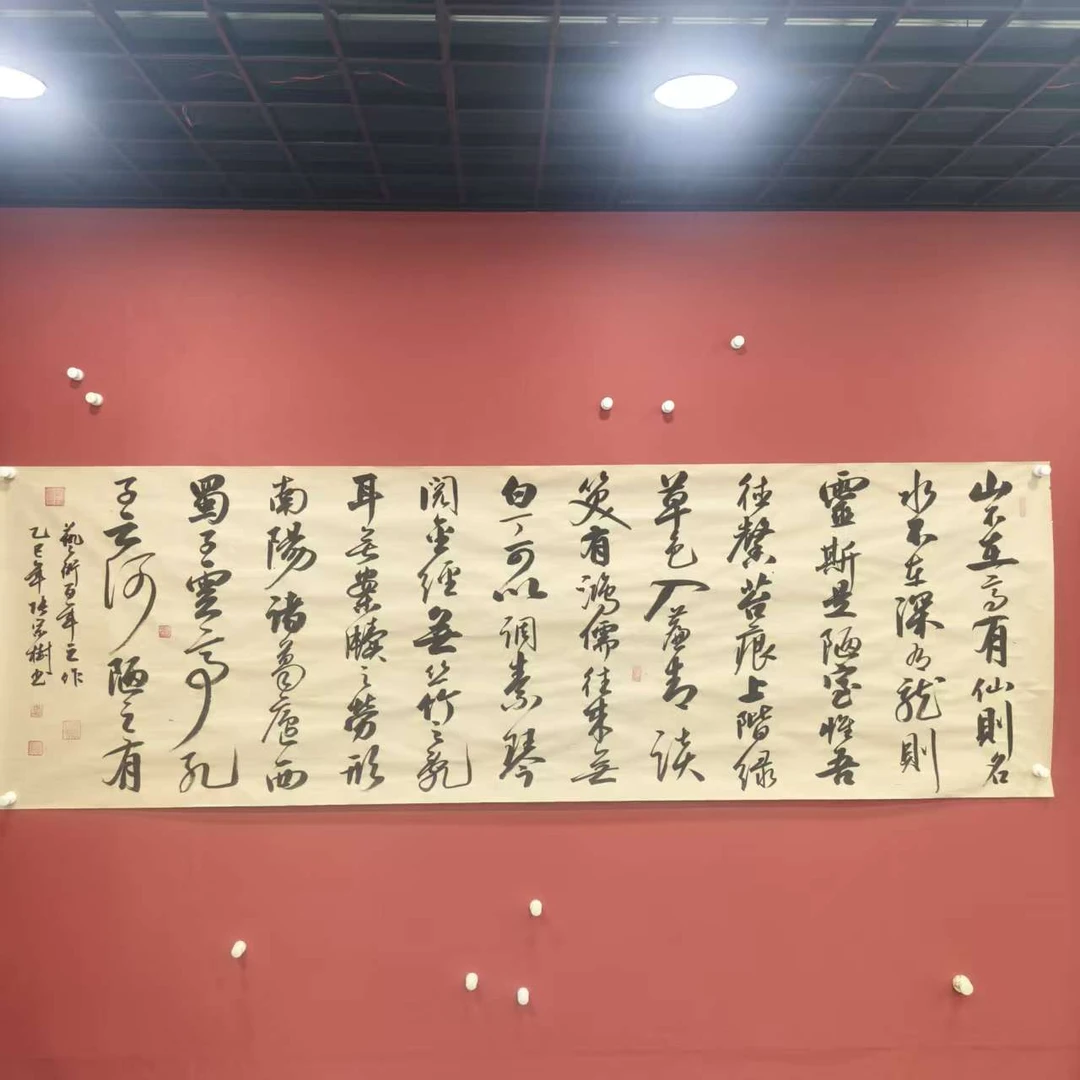 山不在高有仙則名
水不在深有龍則
靈斯是陋室惟吾
德馨苔痕上階緑
草色入簾青談
笑有鴻儒往来無
白丁可以調素琴
閲金經無丝竹之亂
耳無案牘之勞形
南陽諸葛廬西
蜀子雲亭孔
子云何陋之有
藝術百年之作
乙巳年 樹书